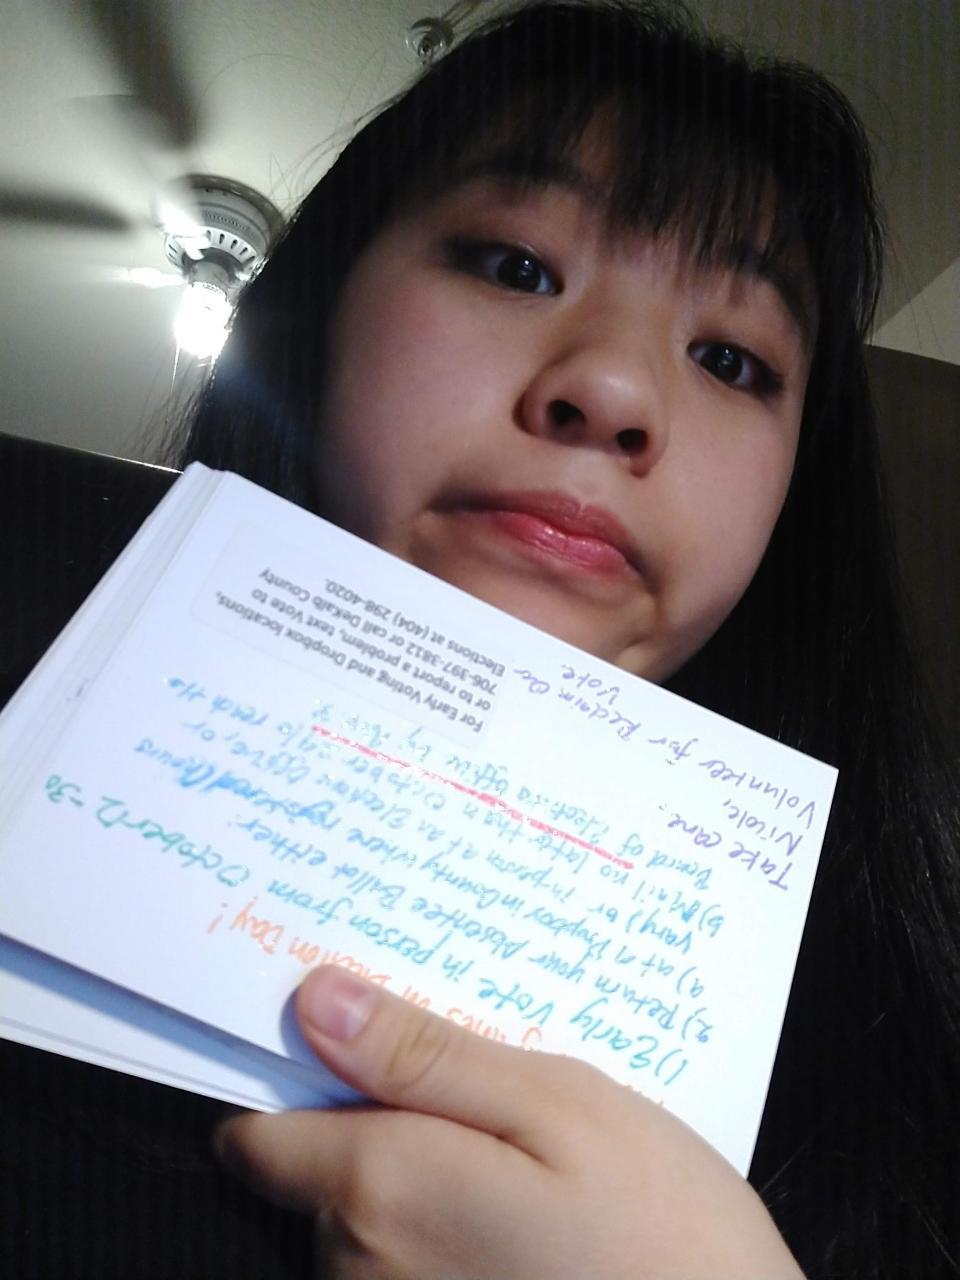 g lines on Election Day!
1) Early Vote in person from October 12-30
2) Return your Absentee Ballot either:
a) at a Dropbox in County where registered (hours
vary) or in person at an Election Office, or
b) Mail no later than October 24 to reach the
Board of Elections Office by Nov 3.
Take Care,
Nicole,
Volunteer for Reclaim Our
Vote
For Early Voting and Dropbox locations,
or to report a problem, text Vote to
706-397-3812 or call DeKalb County
Elections at (404) 298-4020.